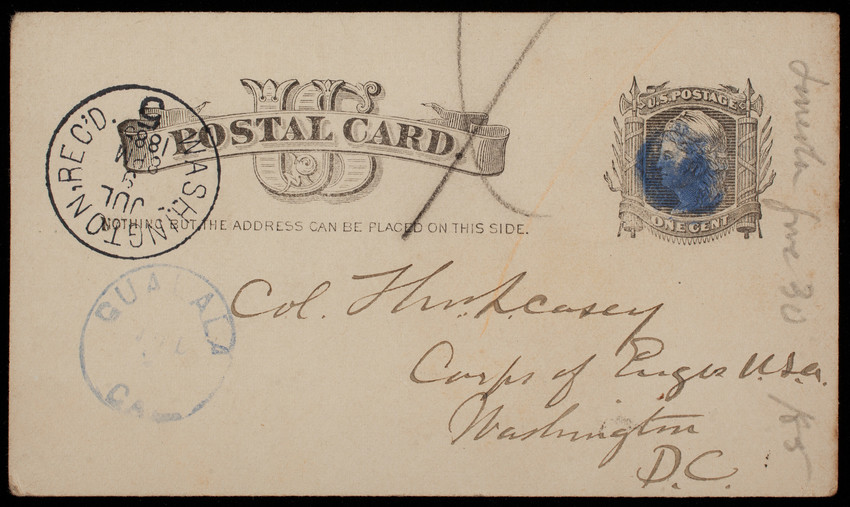 US
POSTAL CARD.
NOTHING BUT THE ADDRESS CAN BE PLACED ON THIS SIDE.
U.S. POSTAGE
ONE CENT
WASHINGTON, REC'D.
JUL
5
GUALALA
CAL
Col. Thos. L. Casey
Corps of Engrs U.S.A.
Washington
D.C.
June 30
/85